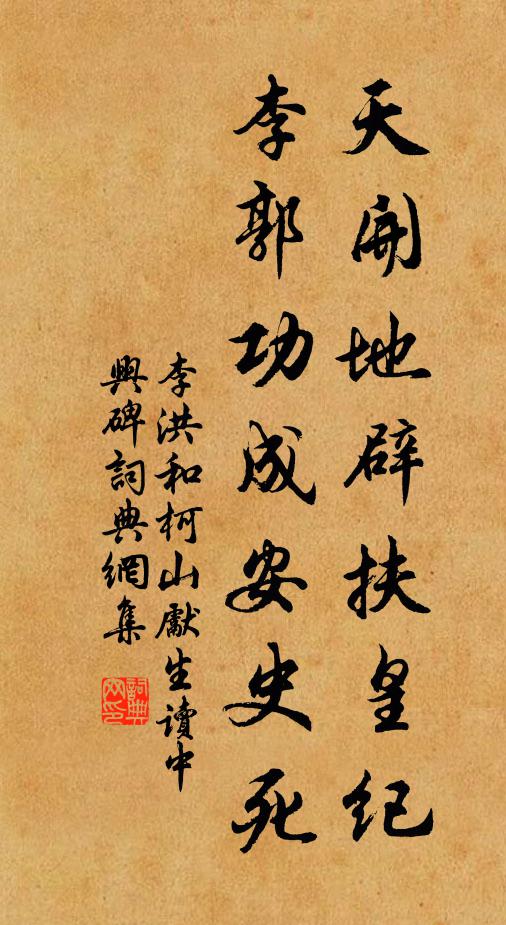 天開地辟扶皇紀
李郭功成安史死
李洪和柯山獻生讀中
興碑詞典網集
詞典
网印